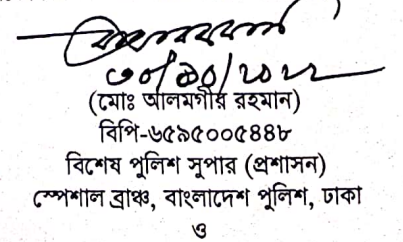 ৩০/১০/২০২২
(মোঃ আলমগীর রহমান)
বিপি-৬৫৯৫০০৫৪৪৮
বিশেষ পুলিশ সুপার (প্রশাসন)
স্পেশাল ব্রাঞ্চ, বাংলাদেশ পুলিশ, ঢাকা
ও